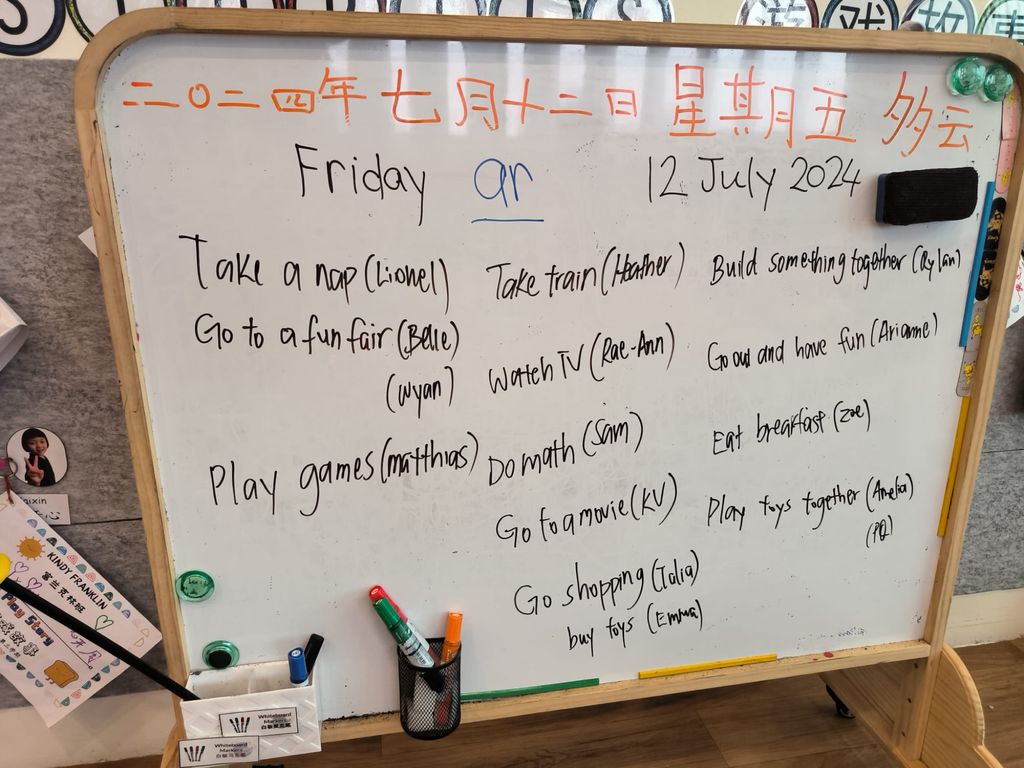 游戏故事
二〇二四年七月十二日 星期五 多云
Friday ar 12 July 2024
Take a nap (Lionel)
Go to a fun fair (Belle)
(Wyan)
Play games (matthias)
Take train (Heather)
Watch TV (Rae-Ann)
Do math (Sam)
Go to a movie (KV)
Go shopping (Talia)
buy toys (Emma)
Build something together (Rylan)
Go out and have fun (Arianne)
Eat breakfast (Zoe)
Play toys together (Amelia)
(PQ)
KINDY FRANKLIN
富兰克林班
Play Story
Whiteboard Markers
白板马克笔
Whiteboard Markers
白板马克笔